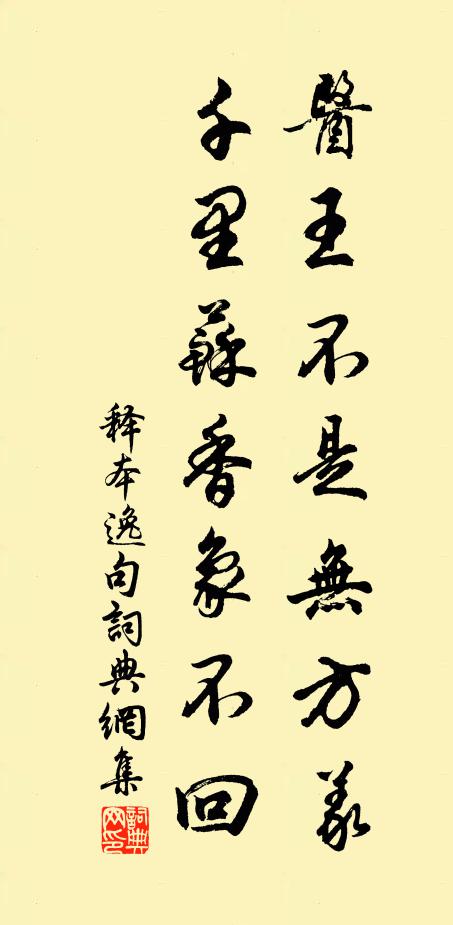 醫王不是無方義
千里蘇香象不回
释本逸句詞典網集
詞典网印